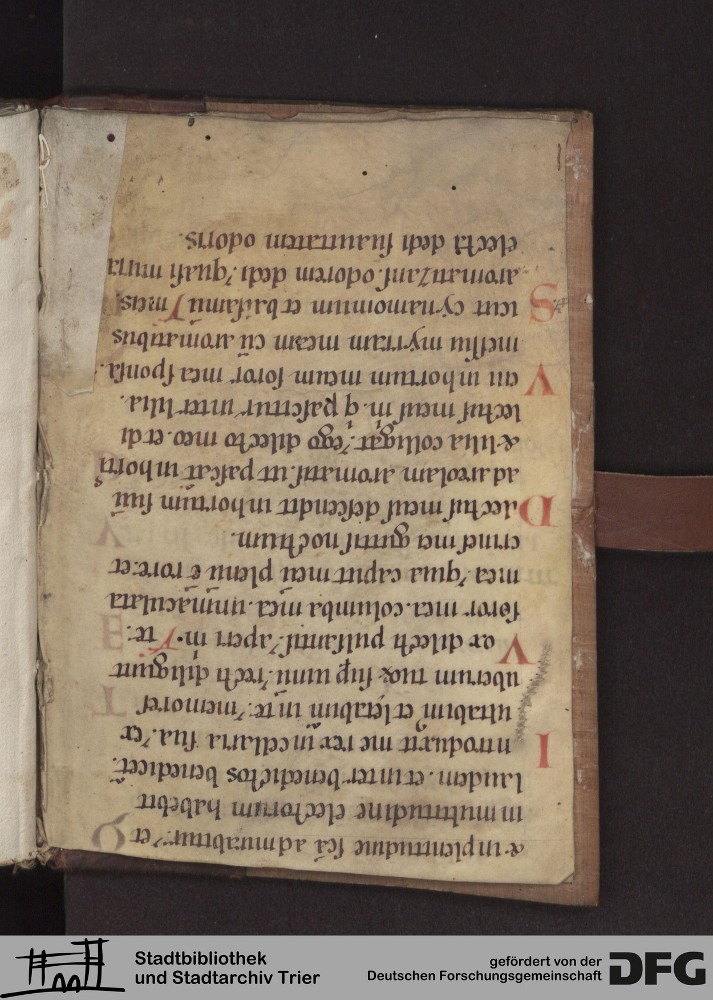 & in plenitudine scā admirabitur. et
in multitudine electorum habebit
laudem. et inter benedictos benedicet̄.
Introduxit me rex in cellaria sua. ex
ultabim̄ et letabim̄ in te. memores
uberum tuoꝝ sup uinū. recti diligunt
Vox dilecti pulsantis. aperi m. V te.
soror mea. columba mea. inmaculata
mea. quia caput meū plenū ē rore. et
crines mei guttis noctium.
Dilectus meus descendit in hortum suū
ad areolam aromatis. ut pascat̄ in hortis
& lilia colligat. ego dilecto meo. et di
lectus meus m. q pascitur inter lilia.
Veni in hortum meum soror mea sponsa.
messui myrram meam cū aromatibus
Sicut cynamomum et balsamū V meis
aromatizans odorem dedi. quasi mirra
electa dedi suauitatem odoris.
Stadtbibliothek
und Stadtarchiv Trier
gefördert von der
Deutschen Forschungsgemeinschaft
DFG